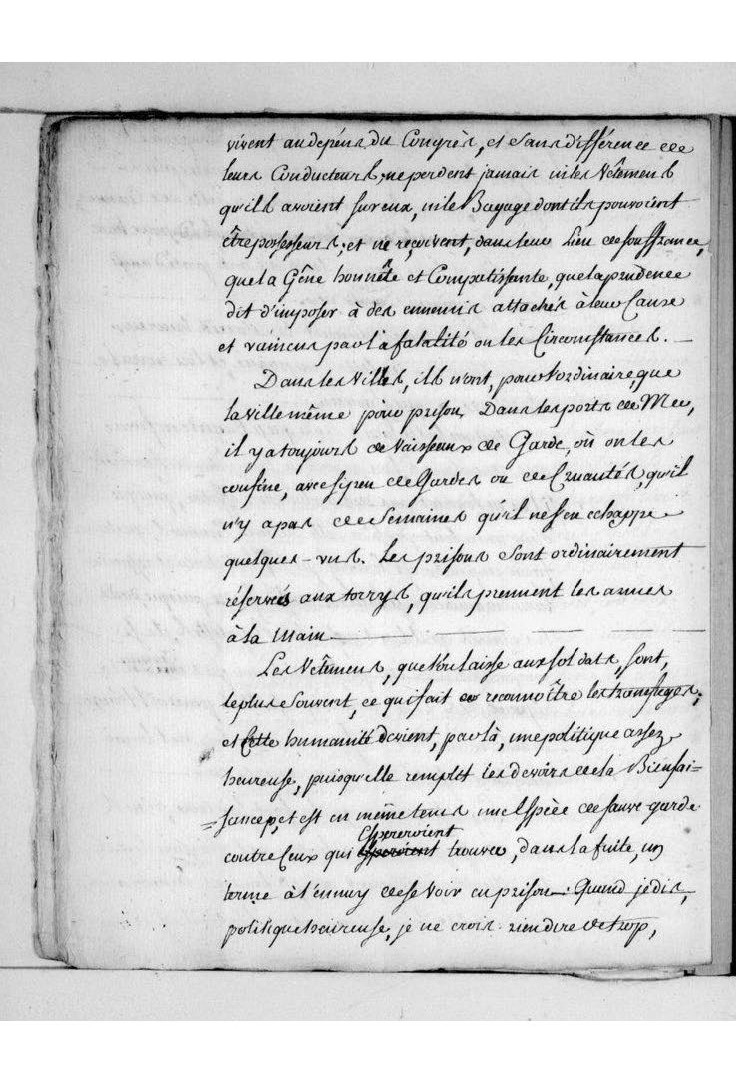 vivent au dépéns du Congrès, et sans différence de
leurs Conducteurs, ne perdent jamais ni les Vêtemens
qu'ils avoient sur eux, ni le Bagage dont ils pouvoient
être possesseurs; et ne reçoivent, dans leur Lieu de souffrance,
que la Gêne honnête et Compatissante, que la prudence
dit d'imposer à des ennemis attachés à leur Cause
et vaincus par la fatalité ou les Circonstances. —
Dans les Villes, ils n'ont, pour l'ordinaire, que
la ville même pour prison. Dans les ports de Mer,
il y a toujours de Vaisseaux de Garde, où on les
confine, avec si peu de Gardes ou de Cruautés, qu'il
n'y a pas de Semaines qu'il ne s'en echappe
quelques-uns. Les prisons sont ordinairement
réservées aux torrys, qu'ils prennent les armes
à la Main —
Les Vêtemens, que l'on laisse aux soldats, sont,
le plus souvent, ce qui fait reconnoître les transfuges;
et Cette humanité devient, par là, une politique assez
heureuse, puisqu'elle remplit les devoirs de la Bienfai=
=sance, et est en même tems une Espèce de sauve-garde
contre Ceux qui Espereroient trouver, dans la fuite, un
terme à l'ennuy de se Voir en prison —. Quand je dis,
politique heureuse, je ne crois rien dire de trop,